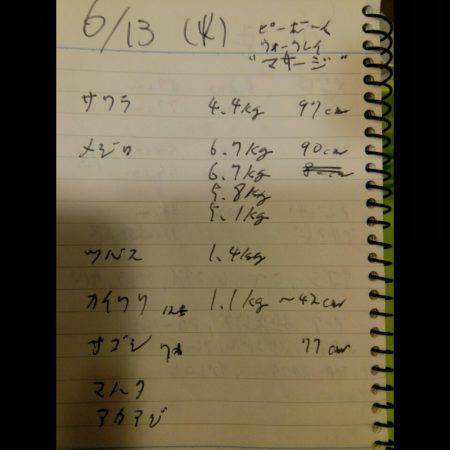 6/13 (火)
ピーボート
ウォークレイ
"マサージ"
サワラ 4.4kg 97cm
メジロ 6.7kg 90cm
6.7kg
5.8kg
5.1kg
ツバス 1.4kg
カイワリ 12本 1.1kg 〜42cm
サゴシ 7本 77cm
マトウ
アカアジ